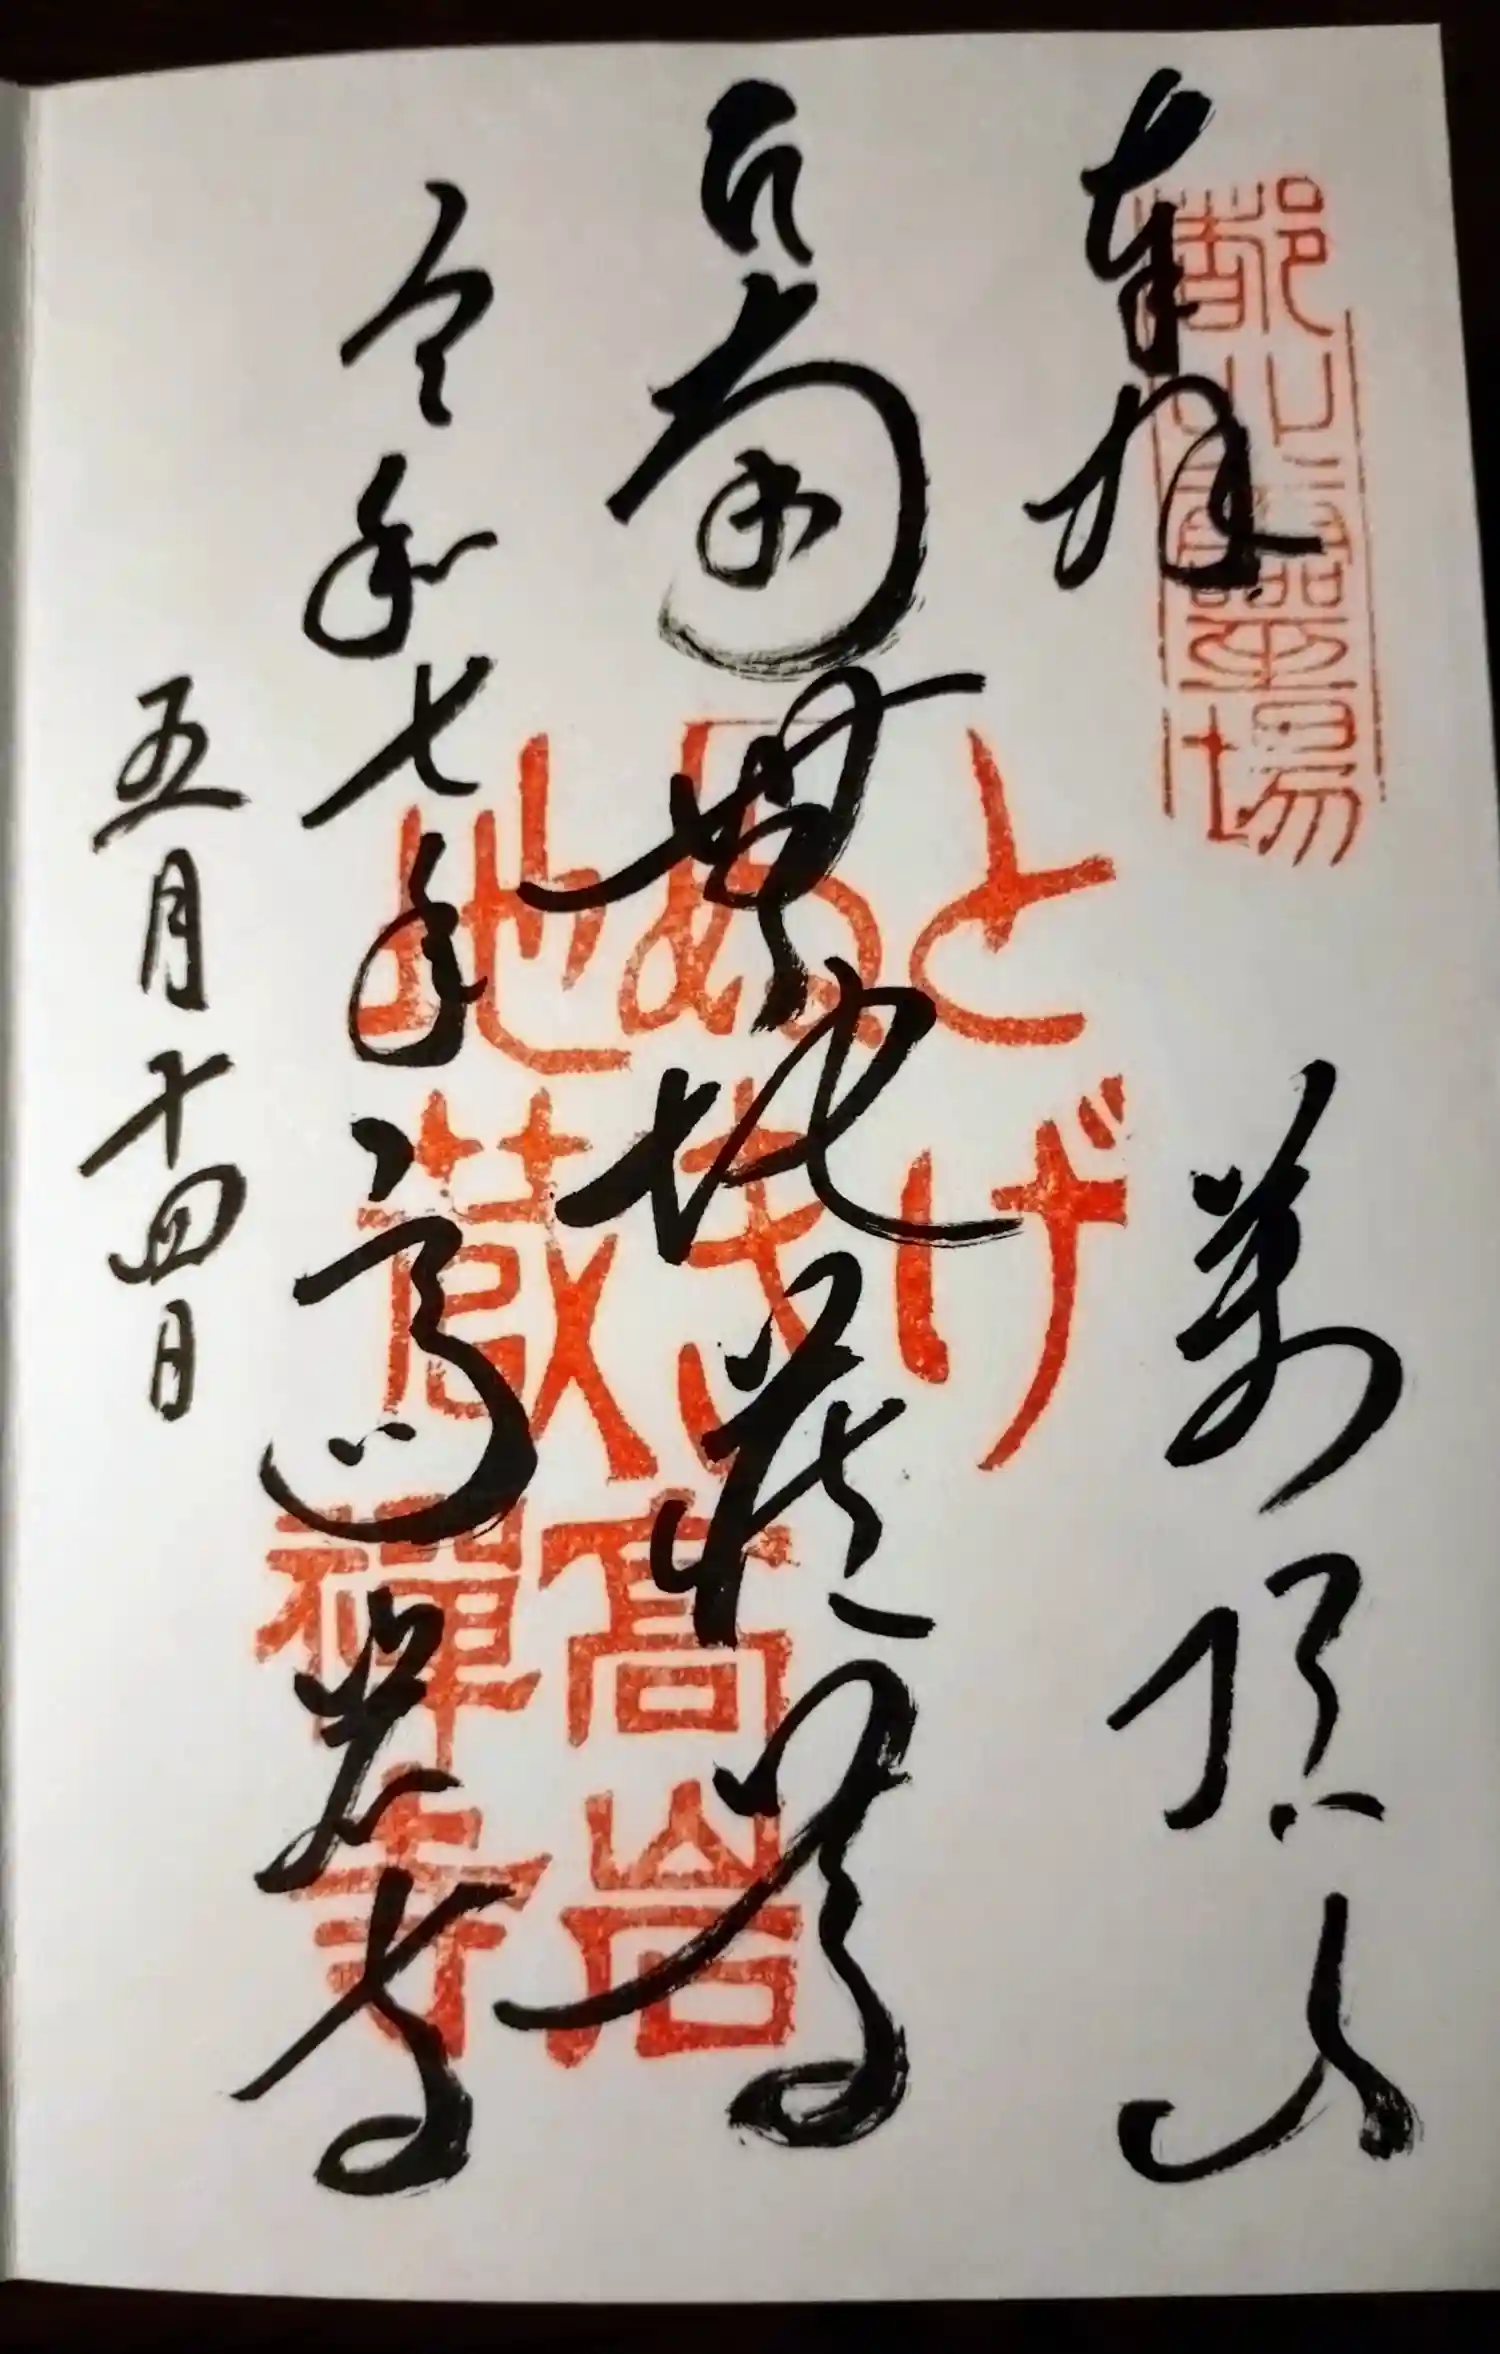 奉拝
萬頂山
南無地蔵尊
令和七年
高岩寺
五月十四日
霊場
とげ
ぬき
地蔵
髙岩
禅寺